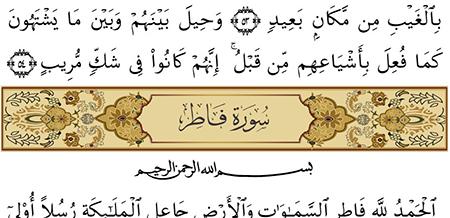 بِٱلۡغَيۡبِ مِن مَّكَانِۭ بَعِيدٖ ٥٣ وَحِيلَ بَيۡنَهُمۡ وَبَيۡنَ مَا يَشۡتَهُونَ
كَمَا فُعِلَ بِأَشۡيَاعِهِم مِّن قَبۡلُۚ إِنَّهُمۡ كَانُواْ فِي شَكّٖ مُّرِيبِۭ ٥٤
سُورَةُ فَاطِرٍ
بسم الله الرحمن الرحيم
ٱلۡحَمۡدُ لِلَّهِ فَاطِرِ ٱلسَّمَٰوَٰتِ وَٱلۡأَرۡضِ جَاعِلِ ٱلۡمَلَٰٓئِكَةِ رُسُلًا أُوْلِيٓ